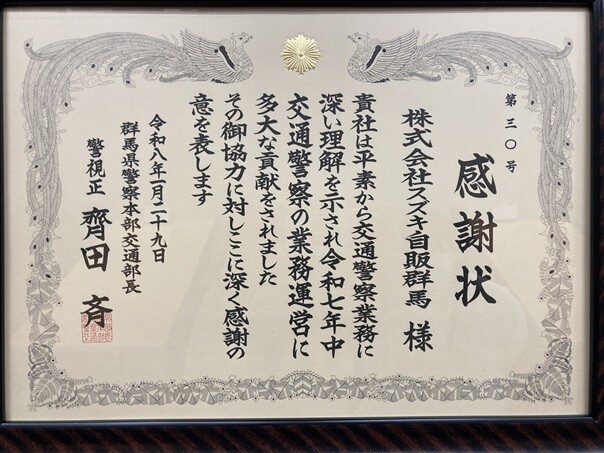 第三〇号
感謝状
株式会社スズキ自販群馬 様
貴社は平素から交通警察業務に
深い理解を示され令和七年中
交通警察の業務運営に
多大な貢献をされました
その御協力に対しここに深く感謝の
意を表します
令和八年一月二十九日
群馬県警察本部交通部長
警視正 齊田 斉